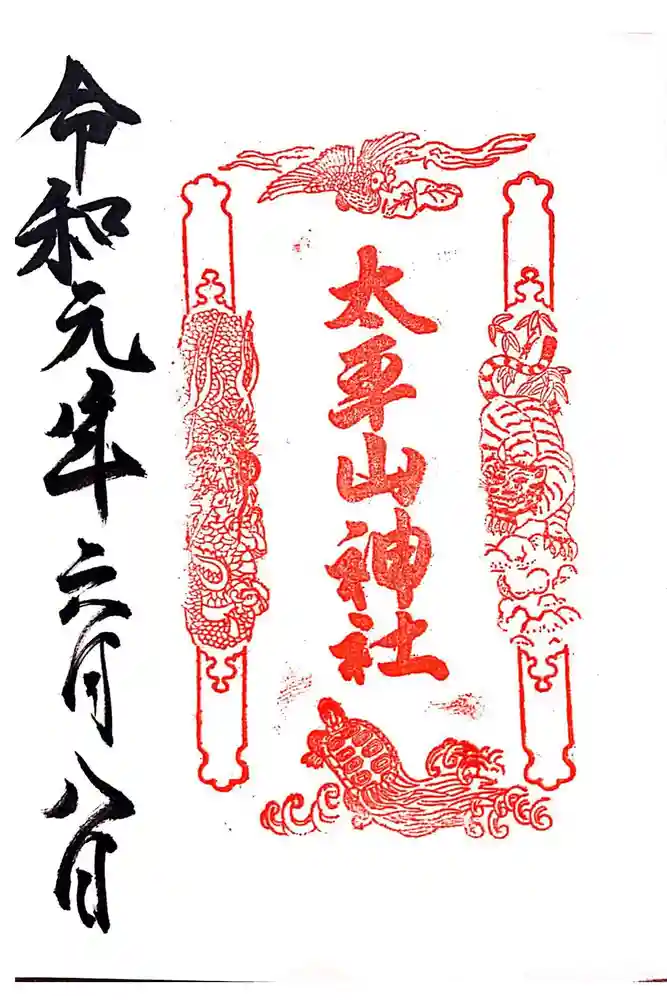 太平山神社
令和元年六月八日